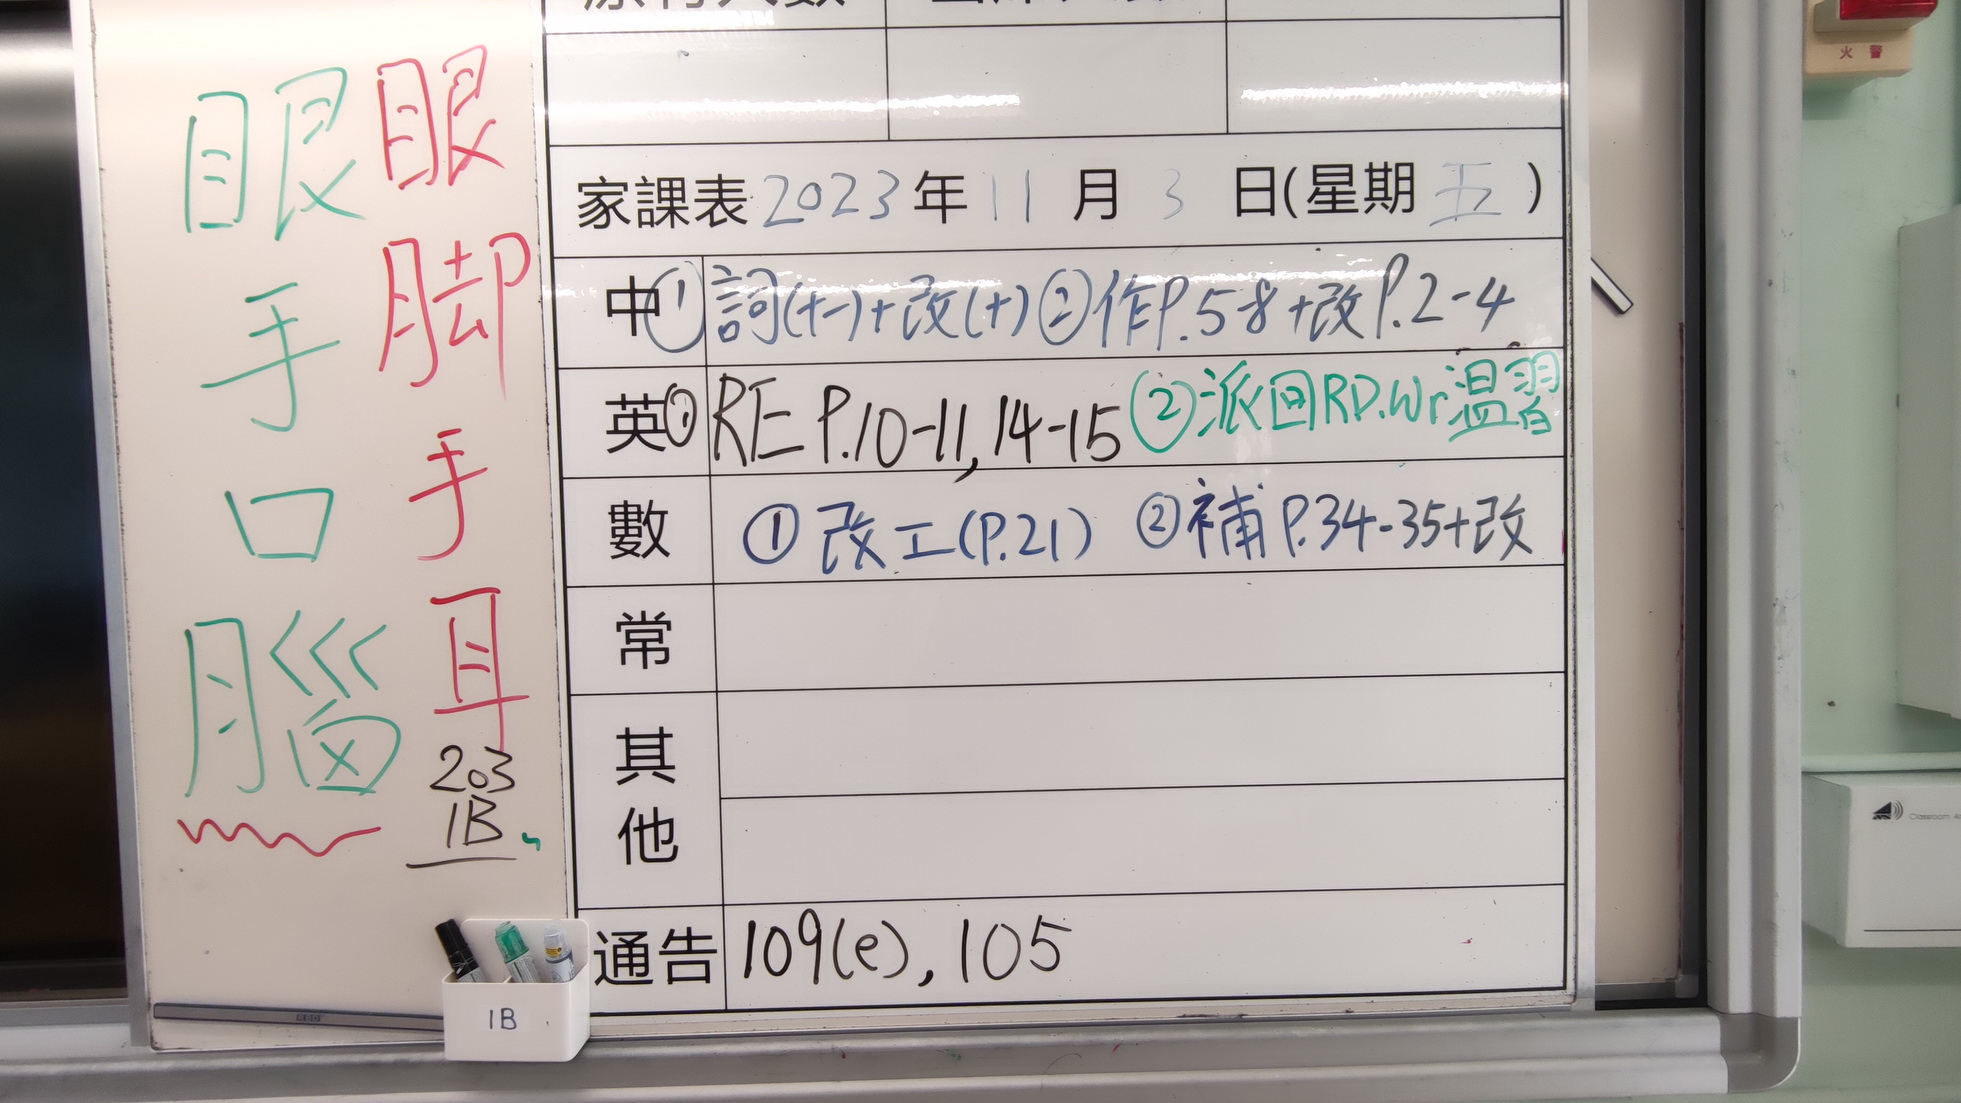 眼 眼
手 脚
口 手
腦 耳
203
1B
1B
家課表 2023 年 11 月 3 日(星期 五 )
中 ① 詞(十一)+改(十) ② 作P.5-8+改P.2-4
英 ① RE P.10-11, 14-15 ② 派回RD.Wr温習
數 ① 改工(P.21) ② 補P.34-35+改
常
其他
通告 109(e), 105
火警
Classroom